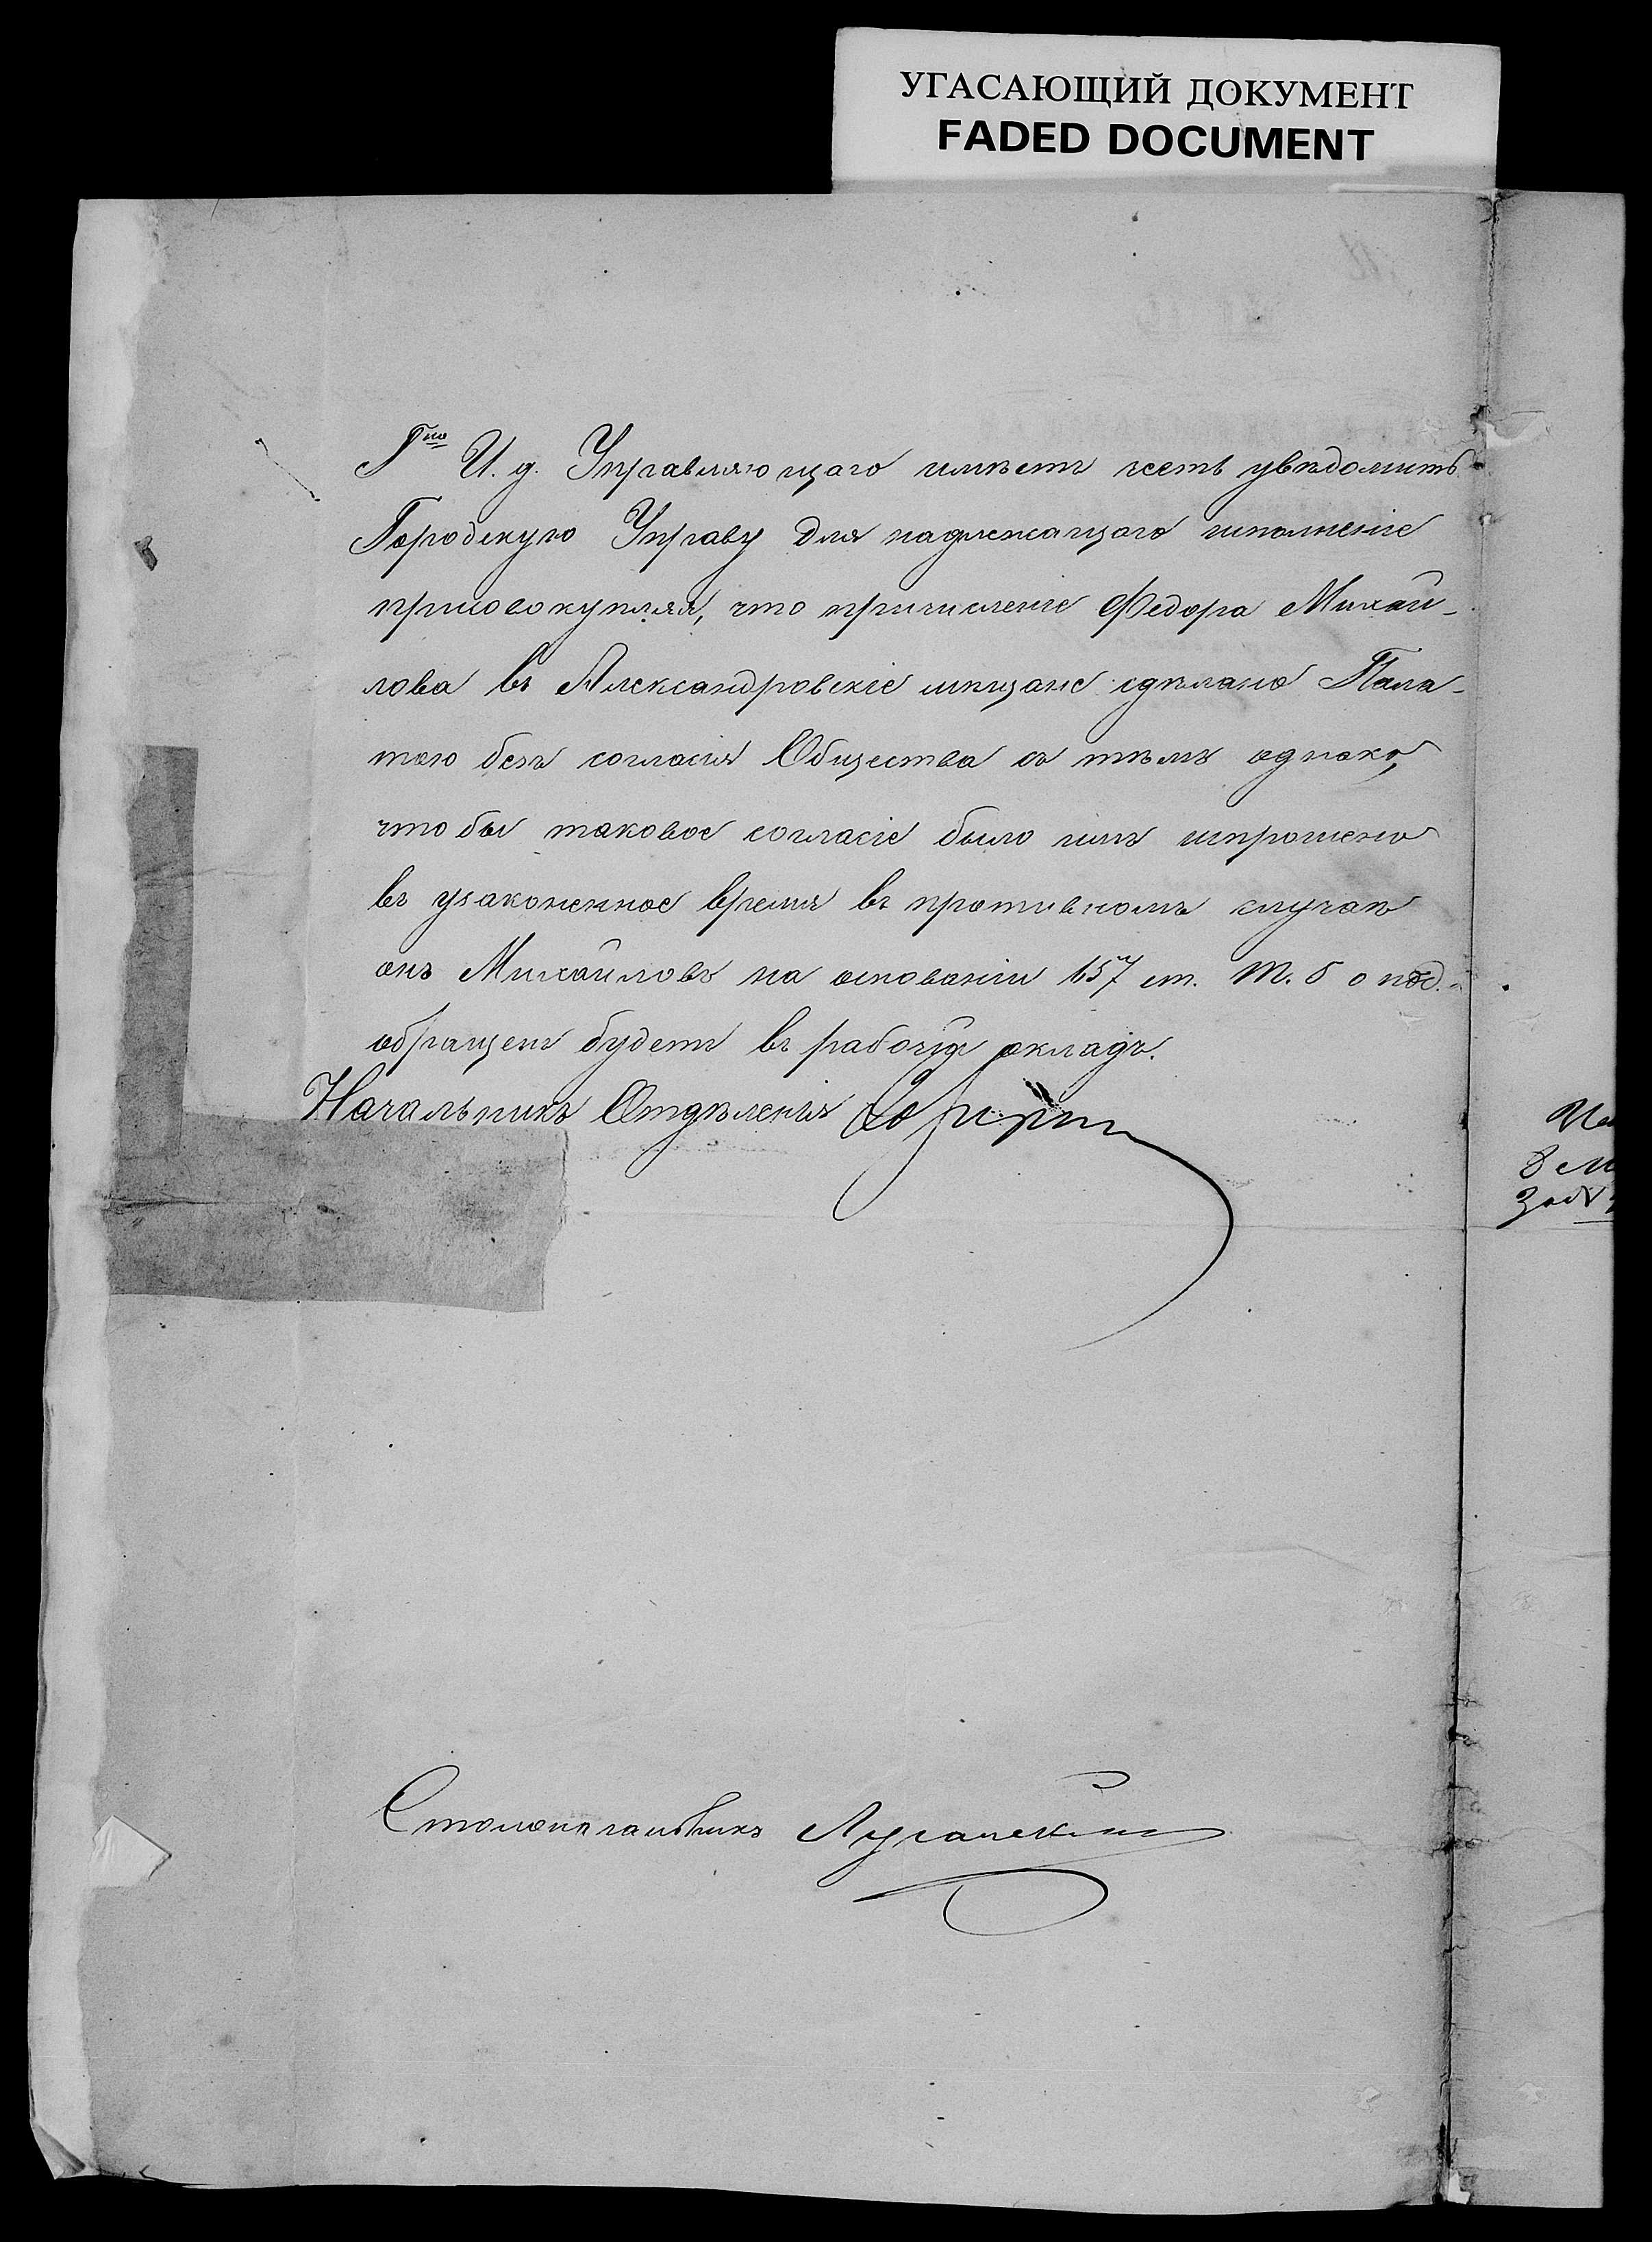 УГАСАЮЩИЙ ДОКУМЕНТ
FADED DOCUMENT
И. д. Управляющаго имѣетъ честь увѣдомить
Городскую Управу для надлежащаго исполненіе
присовокупляя, что причисленіе Федора Михай-
лова въ Александровскіе мѣщане сдѣлано Пала-
тою безъ согласія Общества съ тѣмъ однако,
чтобы таковое согласіе было имъ испрошено
въ узаконенное время въ противномъ случаѣ
онъ Михайловъ на основаніи 157 ст. т. 5 о под.
обращенъ будетъ въ рабочій окладъ.
Начальникъ Отдѣленія
Столоначальникъ Луганскій